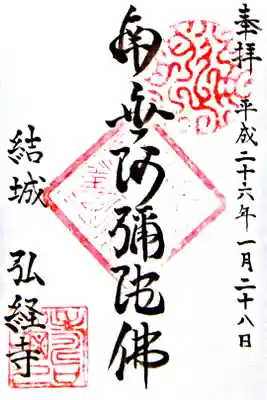 奉拝 平成二十六年一月二十八日
南无阿彌陀佛
結城 弘経寺